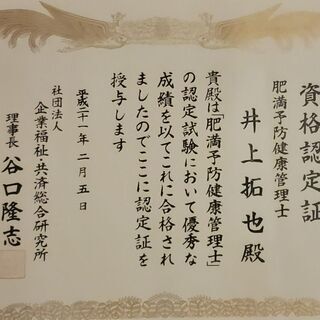 資格認定証
肥満予防健康管理士
井上拓也殿
貴殿は「肥満予防健康管理士」
の認定試験において優秀な
成績を以てこれに合格され
ましたのでここに認定証を
授与します
平成二十一年二月五日
社団法人
企業福祉共済総合研究所
理事長谷口隆志